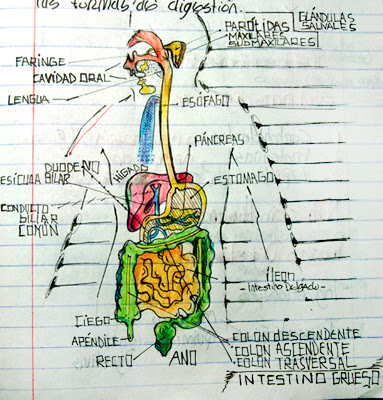 las formas de digestión.
PARÓTIDAS
MAXILARES
SUBMAXILARES
GLÁNDULAS
SALIVALES
FARINGE
CAVIDAD ORAL
LENGUA
ESÓFAGO
PÁNCREAS
DUODENO
HÍGADO
ESÍCULA BILIAR
ESTOMAGO
CONDUCTO
BILIAR
COMÚN
ÍLEON
Intestino Delgado
CIEGO
APÉNDICE
RECTO
ANO
COLON DESCENDENTE
COLON ASCENDENTE
COLON TRASVERSAL
INTESTINO GRUESO